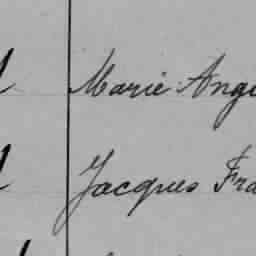 Marie Ange
Jacques Fra